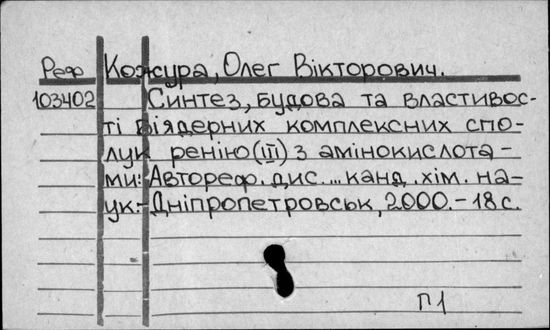 Реф Кожура, Олег Вікторович.
103402 Синтез, будова та властивос-
ті біядерних комплексних спо-
лук ренію(III) з амінокислота-
ми: Автореф. дис. ... канд. хім. на-
ук. - Дніпропетровськ, 2000. - 18 с.
П1